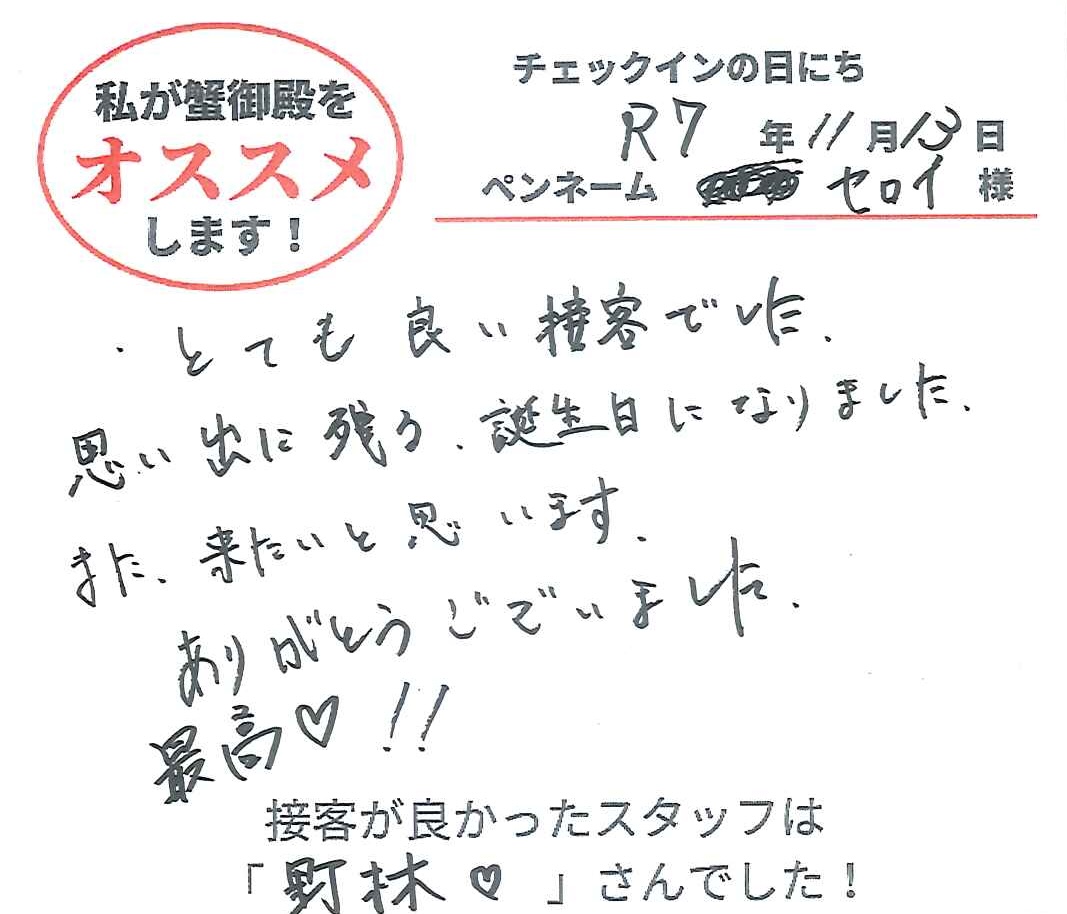 私が蟹御殿を
オススメ
します！
チェックインの日にち
R7 年 11 月 13 日
ペンネーム セロイ 様
・とても良い接客でした.
思い出に残る、誕生日になりました.
また、来たいと思います.
ありがとうございました.
最高♡!!
接客が良かったスタッフは
「野林♡」さんでした！